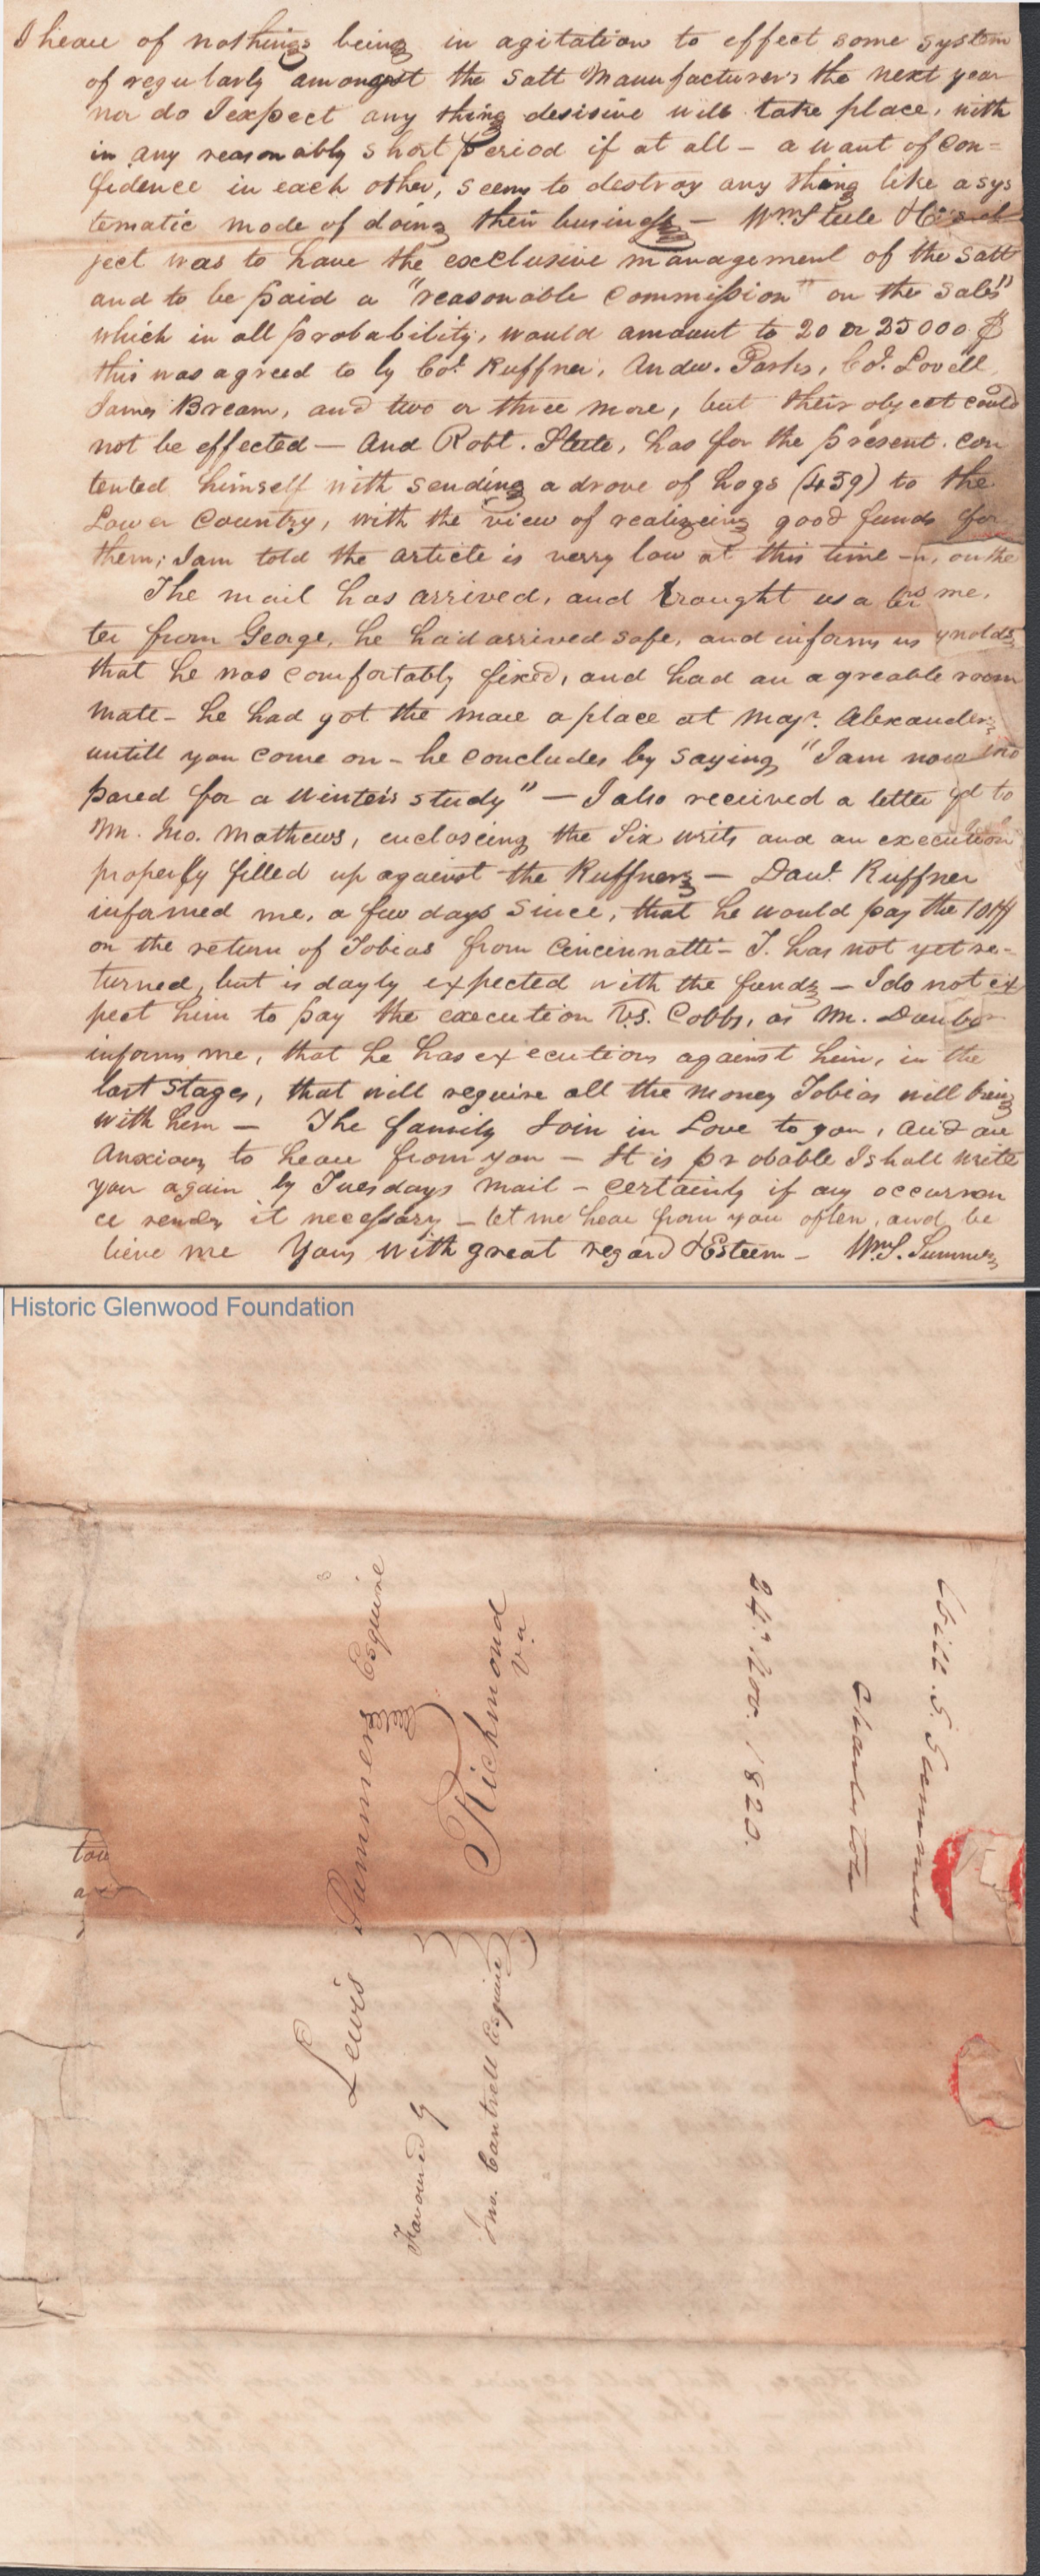 I heare of nothing being in agitation to effect some system
of regularly amongst the Salt Manufacturers the next year
nor do I expect any thing desisive will take place, with
in any reasonably short period if at all – a want of Con=
fidence in each other, seems to destroy any thing like a sys
tematic mode of doing their business – Wm. Steele & Co's ob
ject was to have the exclusive management of the Salt
and to be paid a "reasonable Commission" on the Sales"
which in all probability, would amount to 20 or 25000 $
this was agreed to by Col. Ruffner, Andw. Parks, Col. Lovell,
James Bream, and two or three more, but their object could
not be effected – And Robt. Steele, has for the present. con
tented himself with sending a drove of hogs (459) to the
Lower Country, with the view of realizeing good funds for
them; I am told the article is verry low at this time – n, on the
The mail has arrived, and brought us a let me,
ter from George, he had arrived safe, and informs us ynolds
that he was comfortably fixed, and had an agreable room
mate – he had got the mare a place at Majr. Alexanders
untill you come on – he concludes by saying "I am now
pared for a winters study" – I also received a letter to
Mr. Jno. Mathews, encloseing the Six writs and an execution
properly filled up against the Ruffners – Danl. Ruffner
informed me, a few days since, that he would pay the
on the return of Tobias from Cincinnatti – T. has not yet re-
turned, but is dayly expected with the funds – I do not ex
pect him to pay the execution vs. Cobbs, as Mr.
informs me, that he has executions against him, in the
last stages, that will require all the money Tobias will bring
with him – The family Join in Love to you, and are
Anxious to heare from you – It is probable I shall write
you again by Tuesdays mail – certainly if any occurran
ce renders it necessary – let me hear from you often, and be
lieve me Yours with great regard & Esteem – Wm. S. Summers
Historic Glenwood Foundation
Will. S. Summers
Charleston
24th. Nov. 1820.
Lewis Summers Esquire
Richmond
Va
Favoured by
Jno. Cantrell Esquire
tou
a